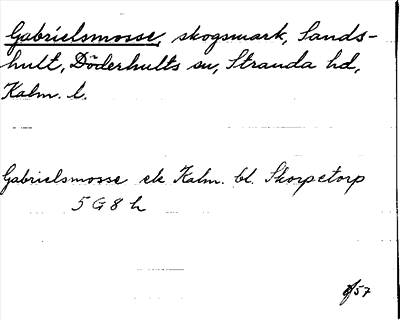 Gabrielsmosse, skogsmark, Sands-
hult, Döderhults sn, Stranda hd,
Kalm. l.
Gabrielsmosse ek Kalm. bl. Skorpetorp
5 G 8 h
57